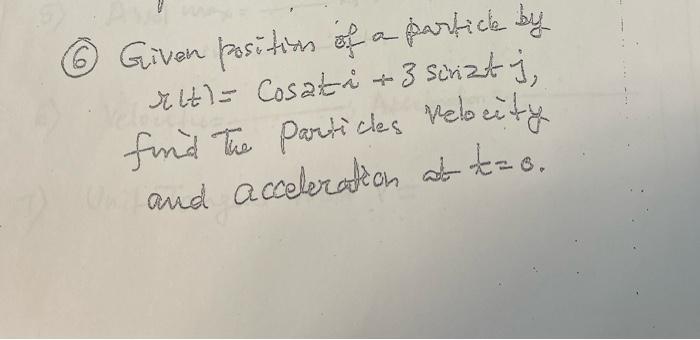 ⑥ Given position of a particle by
r(t) = Cos2t i + 3 sin2t j,
find The Particles velocity
and acceleration at t=0.